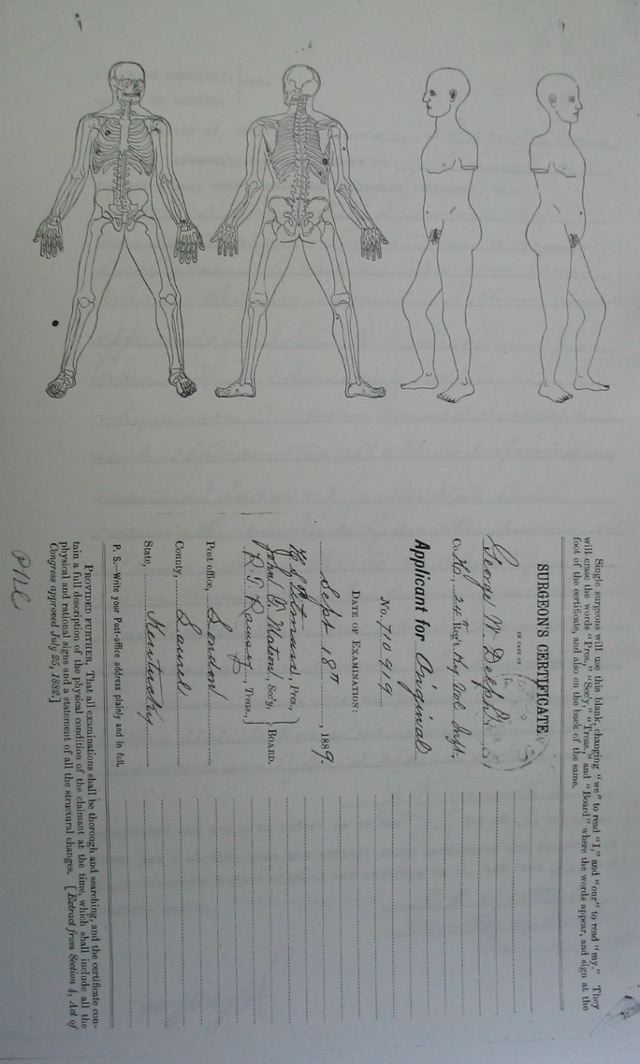 Single surgeons will use this blank, changing "we" to read "I," and "our" to read "my." They
will erase the words "Pres.," "Sec'y," "Treas.," and "Board" where the words appear, and sign at the
foot of the certificate, and also on the back of the same.
SURGEON'S CERTIFICATE
IN CASE OF
George W. Delph
Co. H, 24 Reg't Ky Vol. Inft.
Applicant for Original
No. 710919
DATE OF EXAMINATION:
Sept 18", 1889.
Pres.,
John D. Sec'y,
R. T. Ramsey, Treas.,
BOARD.
Post office, London
County, Laurel
State, Kentucky
P. S.—Write your Post-office address plainly and in full.
PROVIDED FURTHER, That all examinations shall be thorough and searching, and the certificate con-
tain a full description of the physical condition of the claimant at the time, which shall include all the
physical and rational signs and a statement of all the structural changes. [Extract from Section 4, Act of
Congress approved July 25, 1882.]